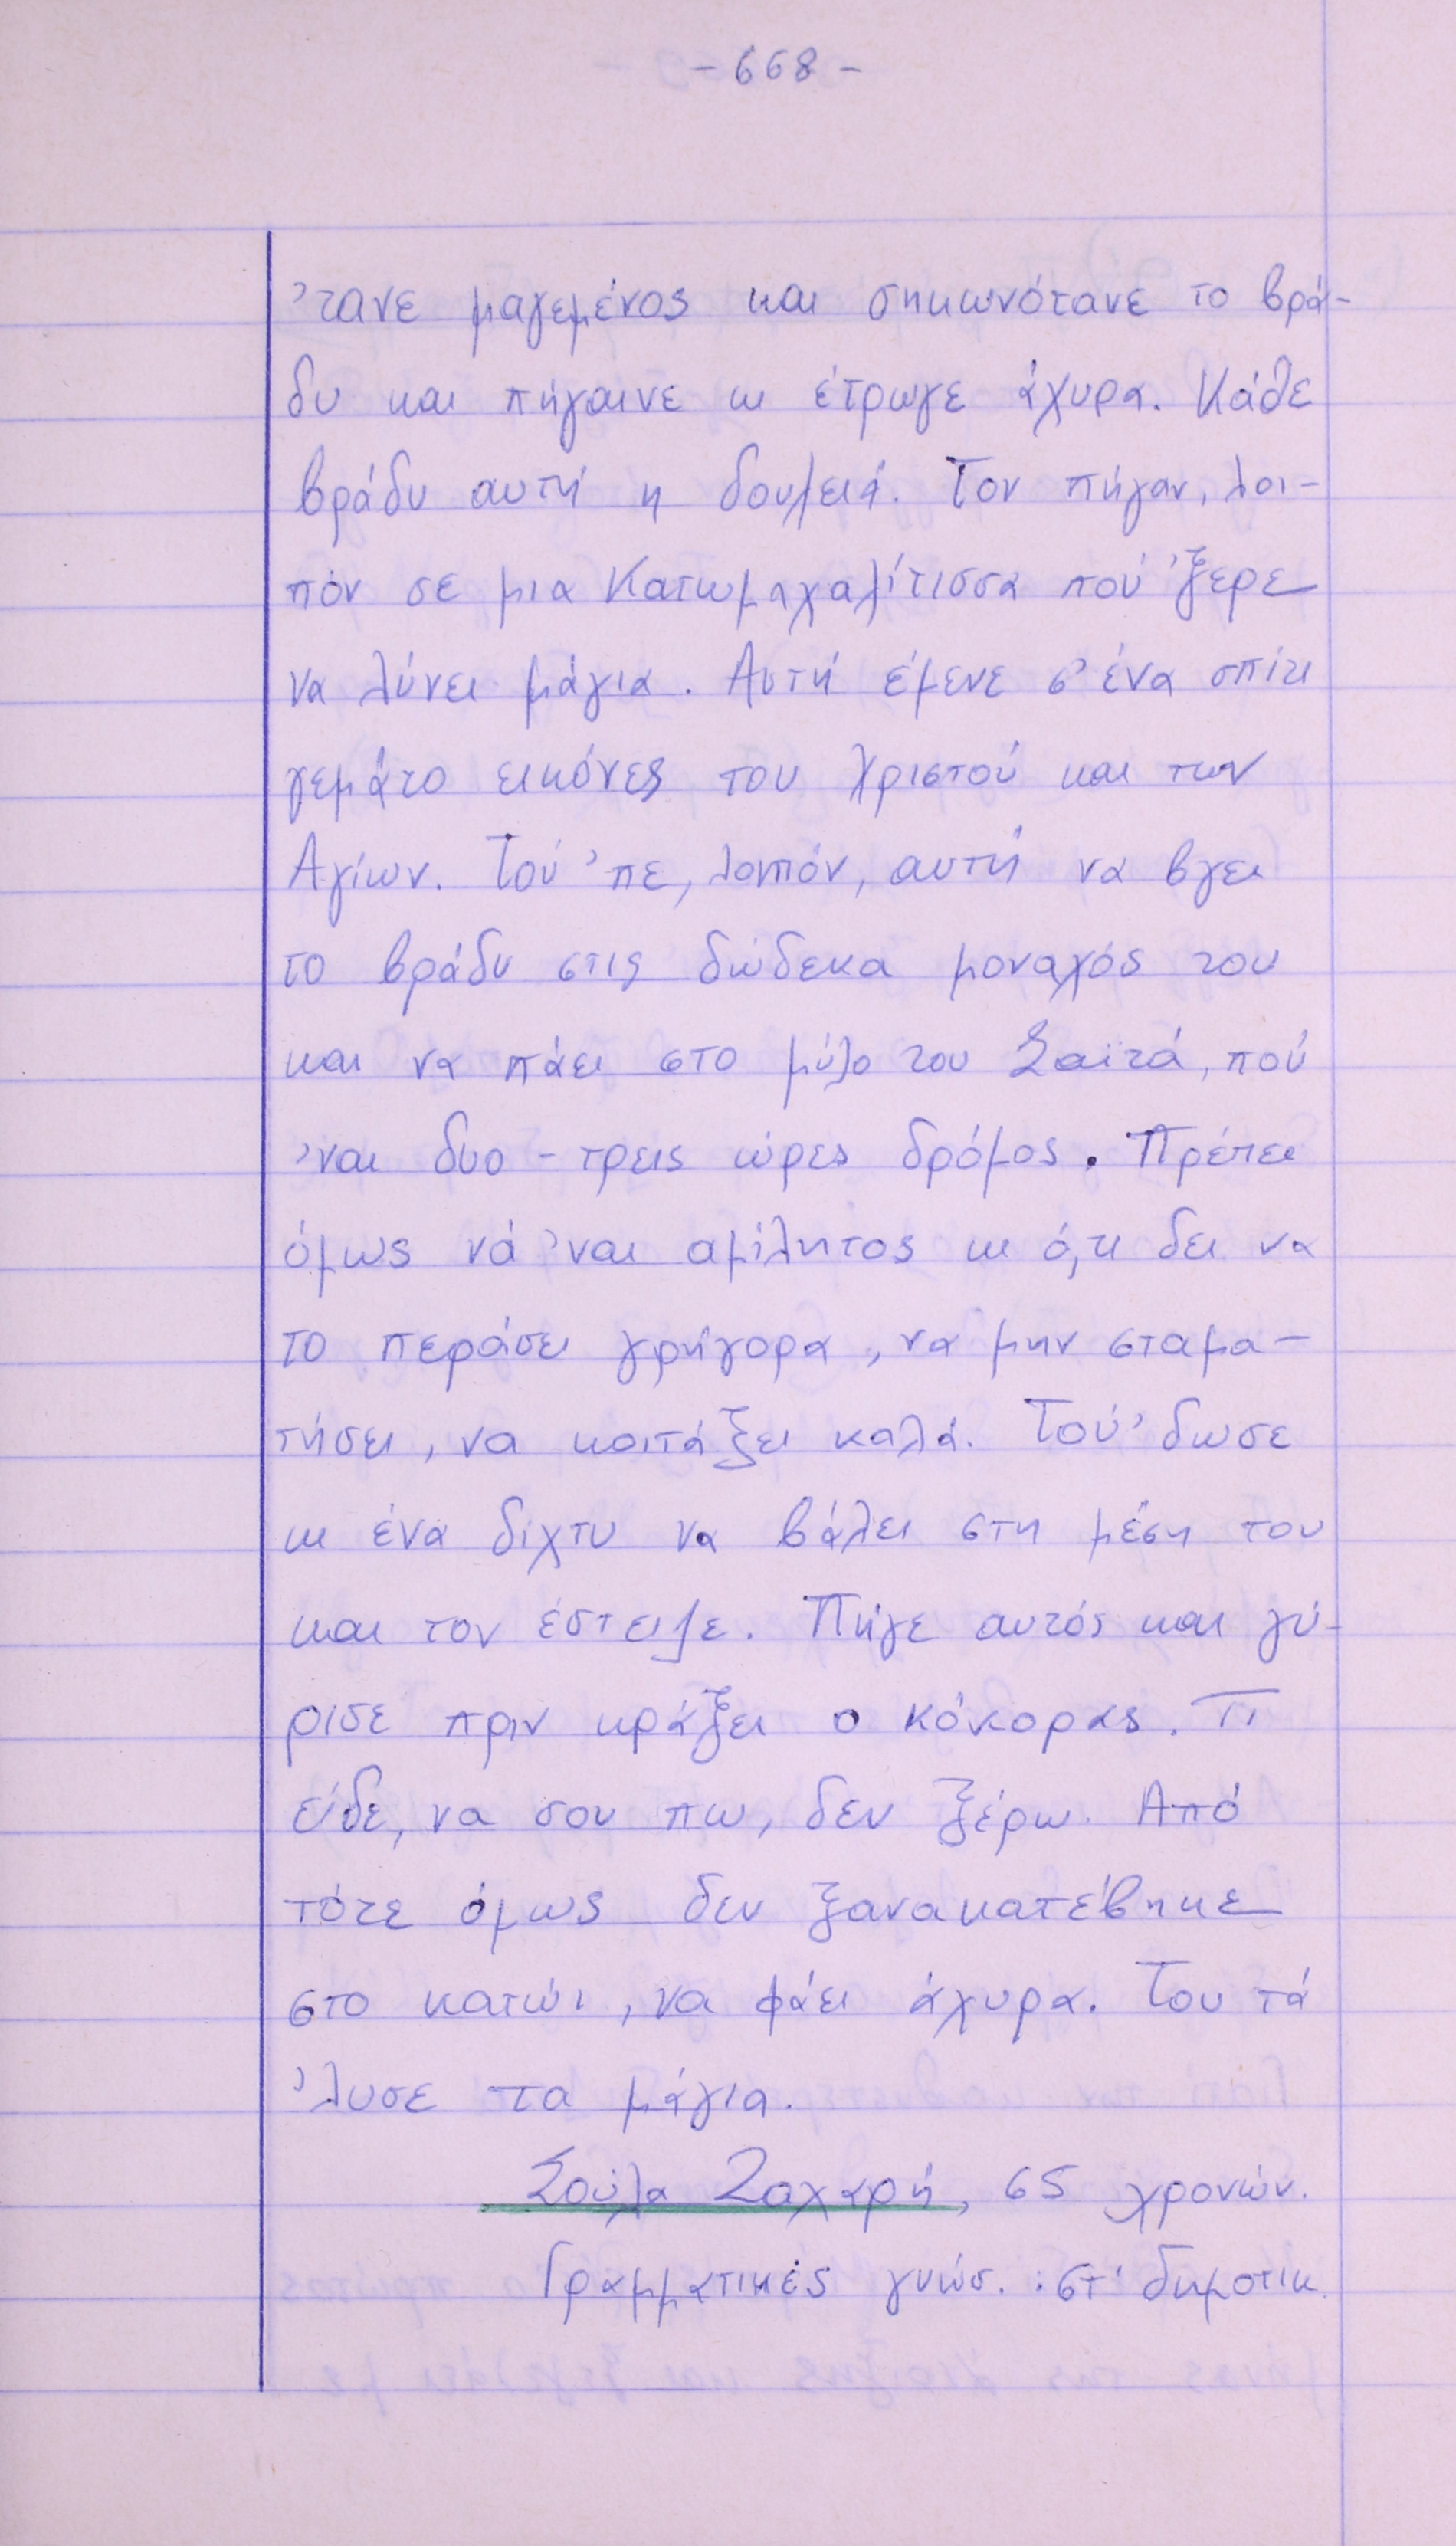 - 668 -
'τανε μαγεμένος και σηκωνότανε το βρά-
δυ και πήγαινε κι έτρωγε άχυρα. Κάθε
βράδυ αυτή η δουλειά. Τον πήγαν, λοι-
πόν σε μια Κατωμαχαλίτισσα πού 'ξερε
να λύνει μάγια. Αυτή έμενε σ' ένα σπίτι
γεμάτο εικόνες του Χριστού και των
Αγίων. Τού 'πε, λοιπόν, αυτή να βγει
το βράδυ στις δώδεκα μοναχός του
και να πάει στο μύλο του Σαϊτά, πού
'ναι δυο - τρεις ώρες δρόμος. Πρέπει
όμως νά 'ναι αμίλητος κι ό,τι δει να
το περάσει γρήγορα, να μην σταμα-
τήσει, να κοιτάξει καλά. Τού' δωσε
κι ένα δίχτυ να βάλει στη μέση του
και τον έστειλε. Πήγε αυτός και γύ-
ρισε πριν κράξει ο κόκορας. Τι
είδε, να σου πω, δεν ξέρω. Από
τότε όμως δεν ξανακατέβηκε
στο κατώι, να φάει άχυρα. Του τά
'λυσε τα μάγια.
Σούλα Ζαχαρή, 65 χρονών.
Γραμματικές γνώσ. : στ' δημοτικ.